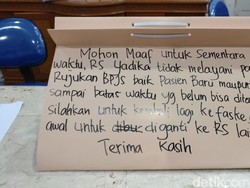 Mohon Maaf untuk Sementara
waktu, RS Yadika tidak melayani pa
Rujukan BPJS baik Pasien Baru maupun
sampai batas waktu yg belum bisa dit
Silahkan untuk kembali lagi ke faske
awal untuk dibu diganti ke RS lai
Terima Kasih
detikcom